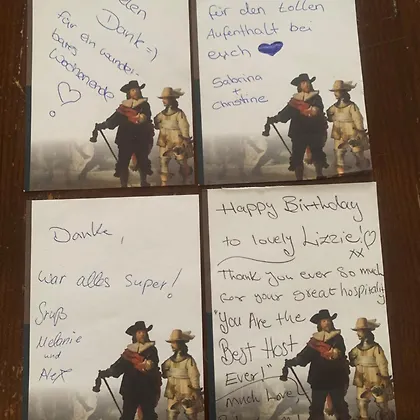 Danke =)
für ein wunder-
bares
Wochenende
für den tollen
Aufenthalt bei
euch
Sabrina
+
Christine
Danke,
War alles Super!
Gruß
Melanie
und
Alex
Happy Birthday
to lovely Lizzie!
xx
Thank you ever so much
for your great hospitality
"You Are the
Best Host
Ever!"
Much Love